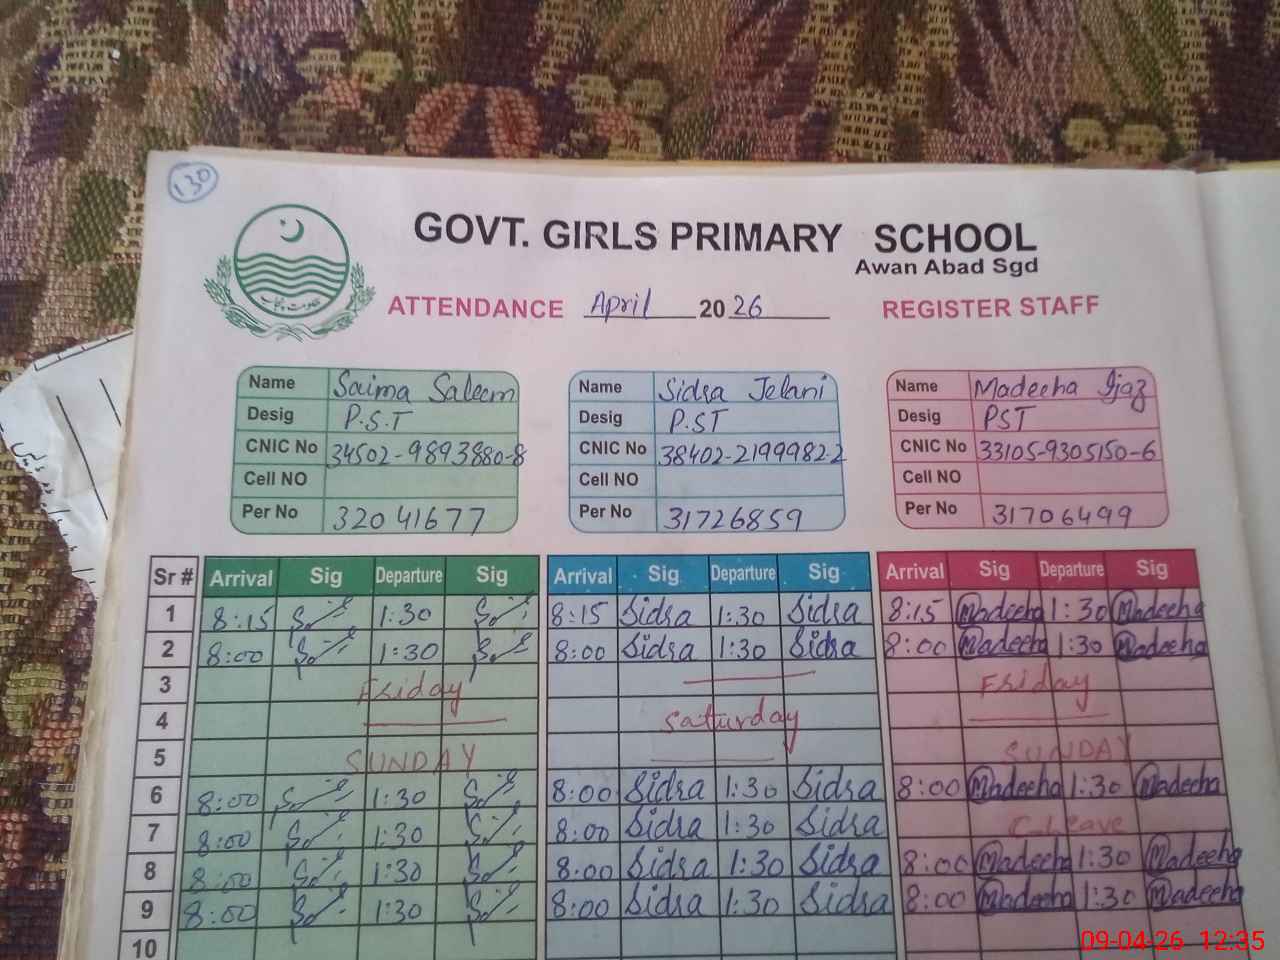 130
GOVT. GIRLS PRIMARY SCHOOL
Awan Abad Sgd
ATTENDANCE April 2026 REGISTER STAFF
حکومت پنجاب
Name Saima Saleem Name Sidra Jelani Name Madeeha Ijaz
Desig P.S.T Desig P.ST Desig PST
CNIC No 34502-9893880-8 CNIC No 38402-2199982-2 CNIC No 33105-9305150-6
Cell NO Cell NO Cell NO
Per No 32041677 Per No 31726859 Per No 31706499
Sr # Arrival Sig Departure Sig Arrival Sig Departure Sig Arrival Sig Departure Sig
1 8:15 1:30 8:15 Sidra 1:30 Sidra 8:15 Madeeha 1:30 Madeeha
2 8:00 1:30 8:00 Sidra 1:30 Sidra 8:00 Madeeha 1:30 Madeeha
3 Friday Friday
4 Saturday
5 SUNDAY SUNDAY
6 8:00 1:30 8:00 Sidra 1:30 Sidra 8:00 Madeeha 1:30 Madeeha
7 8:00 1:30 8:00 Sidra 1:30 Sidra C-leave
8 8:00 1:30 8:00 Sidra 1:30 Sidra 8:00 Madeeha 1:30 Madeeha
9 8:00 1:30 8:00 Sidra 1:30 Sidra 8:00 Madeeha 1:30 Madeeha
10
09-04-26 12:35